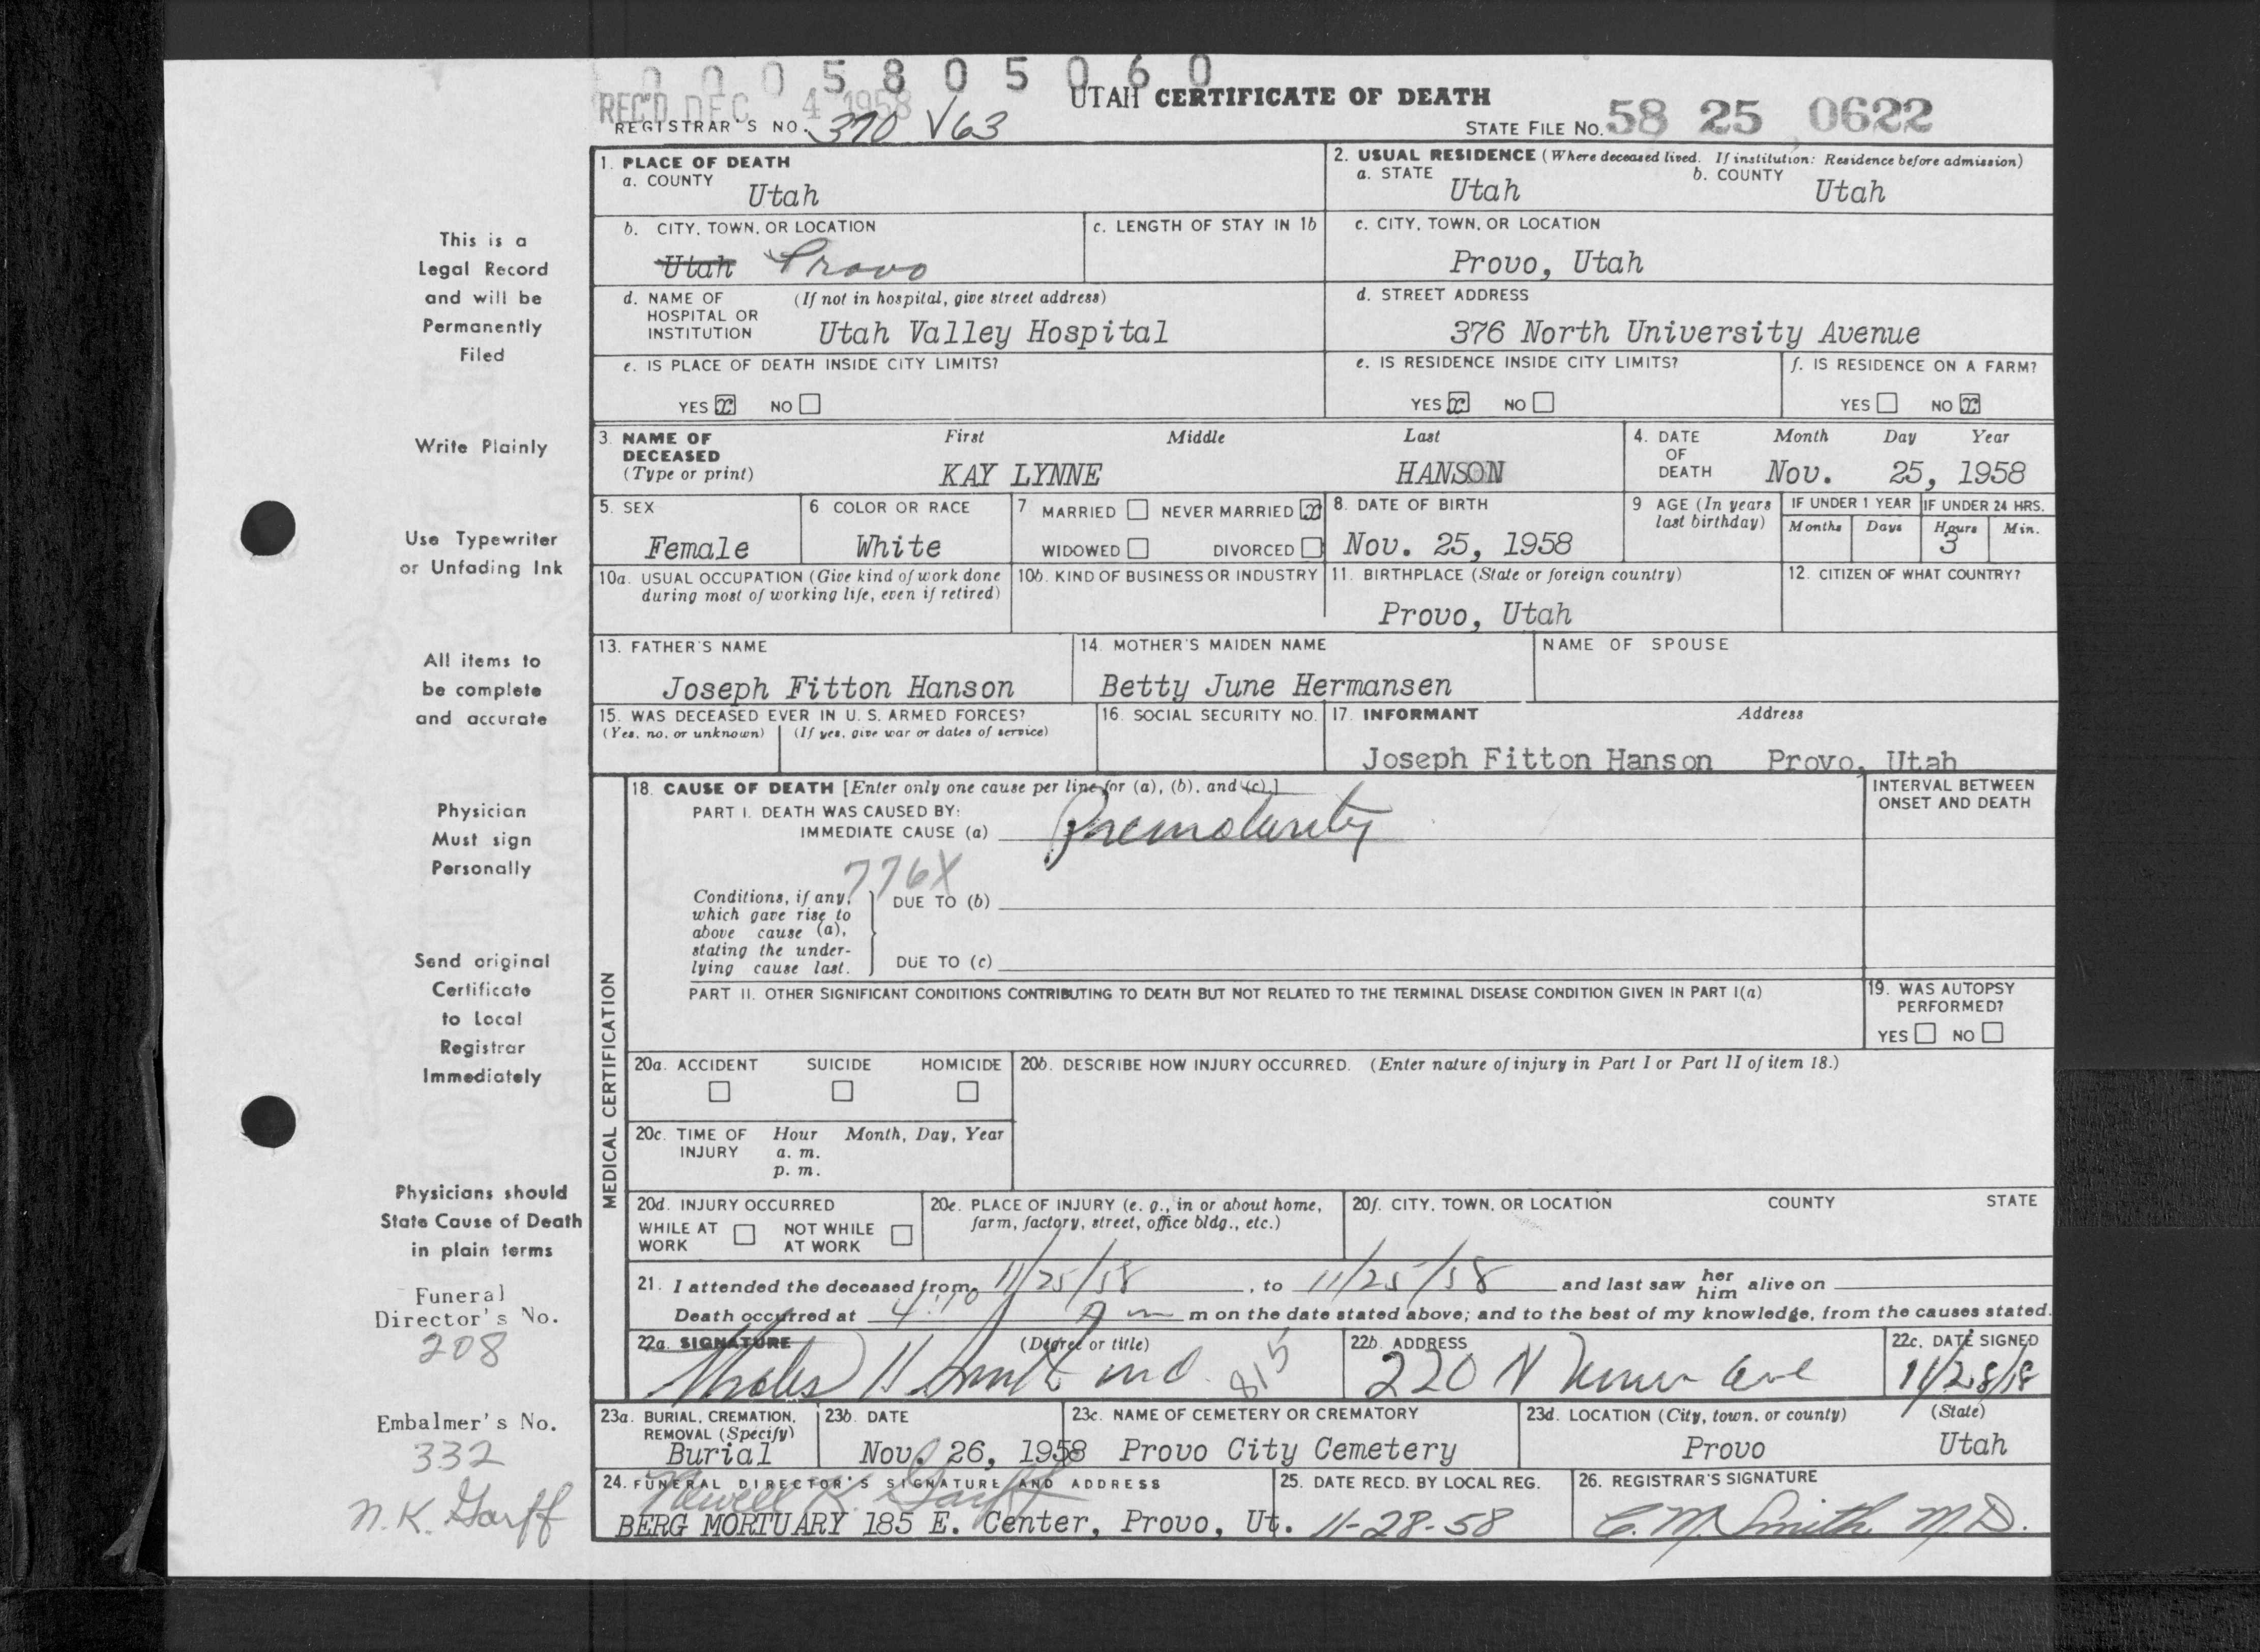 0 0 0 5 8 0 5 0 6 0
REC'D DEC 4 1958
UTAH CERTIFICATE OF DEATH
REGISTRAR'S NO. 370 V63
STATE FILE NO. 58 25 0622
1. PLACE OF DEATH
a. COUNTY
Utah
2. USUAL RESIDENCE (Where deceased lived. If institution: Residence before admission)
a. STATE Utah b. COUNTY Utah
b. CITY, TOWN, OR LOCATION
Utah Provo
c. LENGTH OF STAY IN 1b
c. CITY, TOWN, OR LOCATION
Provo, Utah
d. NAME OF HOSPITAL OR INSTITUTION (If not in hospital, give street address)
Utah Valley Hospital
d. STREET ADDRESS
376 North University Avenue
e. IS PLACE OF DEATH INSIDE CITY LIMITS?
YES x NO
e. IS RESIDENCE INSIDE CITY LIMITS?
YES x NO
f. IS RESIDENCE ON A FARM?
YES NO x
3. NAME OF DECEASED (Type or print)
First Middle Last
KAY LYNNE HANSON
4. DATE OF DEATH
Month Day Year
Nov. 25, 1958
5. SEX
Female
6 COLOR OR RACE
White
7 MARRIED NEVER MARRIED x
WIDOWED DIVORCED
8. DATE OF BIRTH
Nov. 25, 1958
9 AGE (In years last birthday)
IF UNDER 1 YEAR
Months Days
IF UNDER 24 HRS.
Hours Min.
3
10a. USUAL OCCUPATION (Give kind of work done during most of working life, even if retired)
10b. KIND OF BUSINESS OR INDUSTRY
11. BIRTHPLACE (State or foreign country)
Provo, Utah
12. CITIZEN OF WHAT COUNTRY?
13. FATHER'S NAME
Joseph Fitton Hanson
14. MOTHER'S MAIDEN NAME
Betty June Hermansen
NAME OF SPOUSE
15. WAS DECEASED EVER IN U. S. ARMED FORCES?
(Yes, no, or unknown) (If yes, give war or dates of service)
16. SOCIAL SECURITY NO.
17. INFORMANT Address
Joseph Fitton Hanson Provo, Utah
MEDICAL CERTIFICATION
18. CAUSE OF DEATH [Enter only one cause per line for (a), (b), and (c).]
PART I. DEATH WAS CAUSED BY:
IMMEDIATE CAUSE (a) Prematurity
INTERVAL BETWEEN ONSET AND DEATH
776X
Conditions, if any, which gave rise to above cause (a), stating the underlying cause last.
DUE TO (b)
DUE TO (c)
PART II. OTHER SIGNIFICANT CONDITIONS CONTRIBUTING TO DEATH BUT NOT RELATED TO THE TERMINAL DISEASE CONDITION GIVEN IN PART I(a)
19. WAS AUTOPSY PERFORMED?
YES NO
20a. ACCIDENT SUICIDE HOMICIDE
20b. DESCRIBE HOW INJURY OCCURRED. (Enter nature of injury in Part I or Part II of item 18.)
20c. TIME OF INJURY
Hour Month, Day, Year
a. m.
p. m.
20d. INJURY OCCURRED
WHILE AT WORK NOT WHILE AT WORK
20e. PLACE OF INJURY (e. g., in or about home, farm, factory, street, office bldg., etc.)
20f. CITY, TOWN, OR LOCATION COUNTY STATE
21. I attended the deceased from 11/25/58, to 11/25/58 and last saw her him alive on
Death occurred at 4:10 m on the date stated above; and to the best of my knowledge, from the causes stated.
22a. SIGNATURE (Degree or title)
H Smith md
815
22b. ADDRESS
220 N Ave
22c. DATE SIGNED
11/28/58
23a. BURIAL, CREMATION, REMOVAL (Specify)
Burial
23b. DATE
Nov. 26, 1958
23c. NAME OF CEMETERY OR CREMATORY
Provo City Cemetery
23d. LOCATION (City, town, or county) (State)
Provo Utah
24. FUNERAL DIRECTOR'S SIGNATURE AND ADDRESS
Newell K. Garff
BERG MORTUARY 185 E. Center, Provo, Ut.
25. DATE RECD. BY LOCAL REG.
11-28-58
26. REGISTRAR'S SIGNATURE
C. M. Smith M.D.
This is a
Legal Record
and will be
Permanently
Filed
Write Plainly
Use Typewriter
or Unfading Ink
All items to
be complete
and accurate
Physician
Must sign
Personally
Send original
Certificate
to Local
Registrar
Immediately
Physicians should
State Cause of Death
in plain terms
Funeral
Director's No.
208
Embalmer's No.
332
N. K. Garff